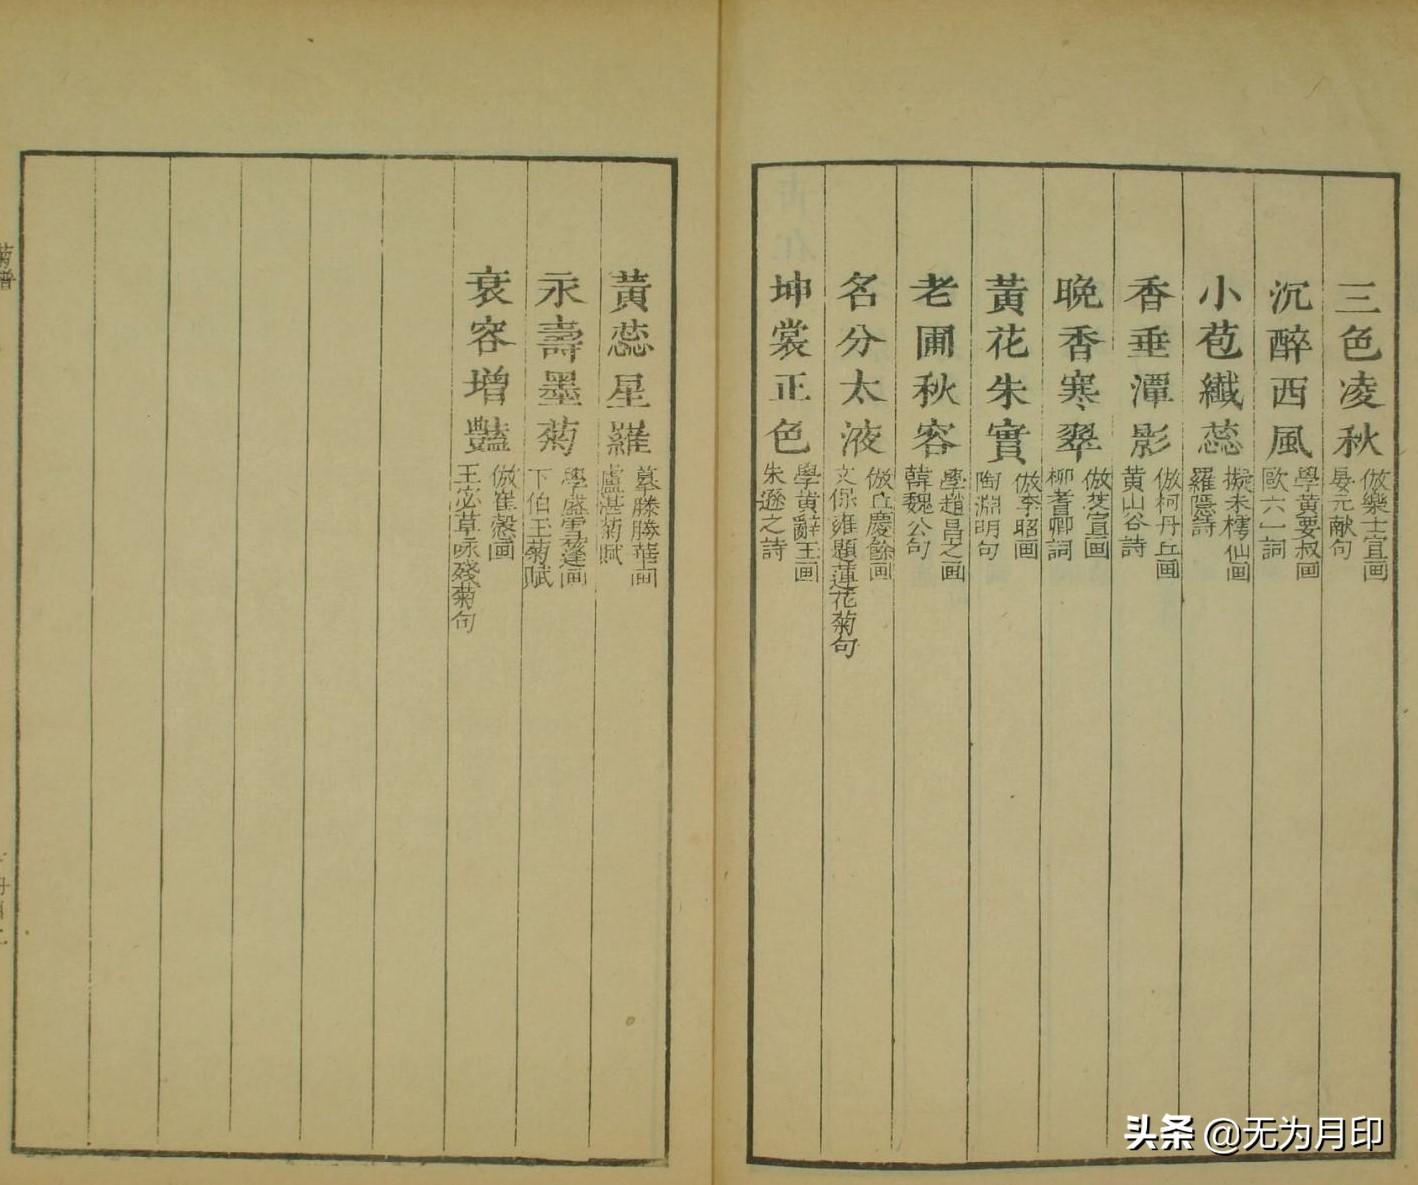 三色凌秋 倣樂士宣画 晏元献句
沉醉西風 學黄要叔画 歐六一詞
小苞纖蕊 擬朱樗仙画 羅隱詩
香垂潭影 倣柯丹丘画 黄山谷詩
晩香寒翠 倣芝宣画 柳耆卿詞
黃花朱實 倣李昭画 陶淵明句
老圃秋容 學趙昌之画 韓魏公句
名分太液 倣丘慶餘画 文保雍題蓮花菊句
坤裳正色 學黄辭王画 朱遜之詩
黃蕊星羅 摹滕勝華画 盧湛菊賦
永壽墨菊 學盛雪蓬画 卞伯玉菊賦
衰容增豔 倣崔慤画 王宓草咏殘菊句
菊譜
头条 @无为月印